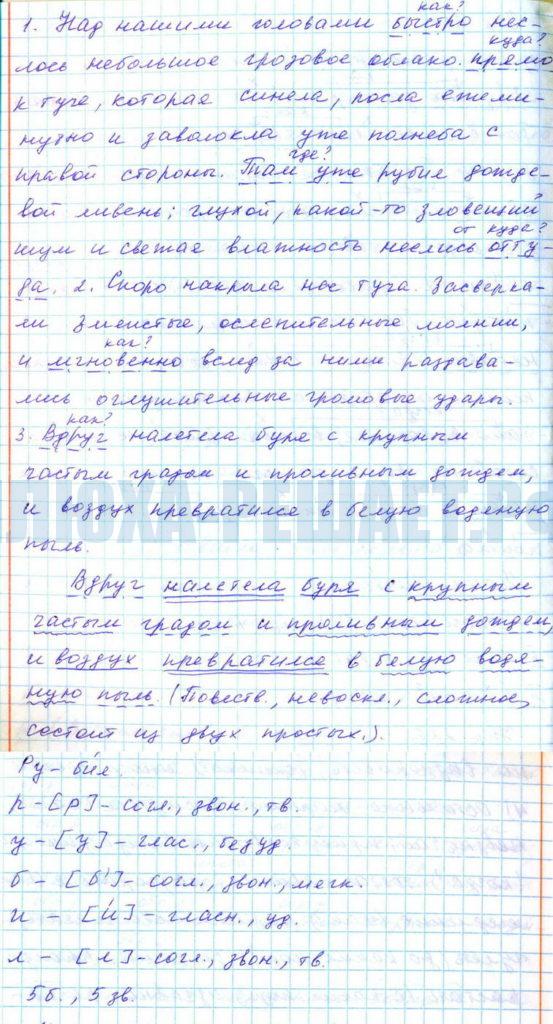 как?
1. Над нашими головами быстро нес-
куда?
лось небольшое грозовое облако. прямо
к туче, которая синела, росла ежеми-
нутно и заволокла уже полнеба с
где?
правой стороны. Там уже рубил дожде-
вой ливень; глухой, какой-то зловещий
от куда?
шум и свежая влажность неслись отту-
да. 2. Скоро накрыла нас туча. Засверка-
ли змеистые, ослепительные молнии,
как?
и мгновенно вслед за ними раздава-
лись оглушительные громовые удары.
как?
3. Вдруг налетела буря с крупным
частым градом и проливным дождем,
и воздух превратился в белую водяную
пыль.
ЛЮХА-РЕШАЕТ.РФ
Вдруг налетела буря с крупным
частым градом и проливным дождем,
и воздух превратился в белую водя-
ную пыль. (Повеств., невоскл., сложное,
состоит из двух простых.).
Ру-би́л.
р - [р] - согл., звон., тв.
у - [у] - глас., безуд.
б - [б'] - согл., звон., мягк.
и - [и́] - гласн., уд.
л - [л] - согл., звон., тв.
5б., 5 зв.